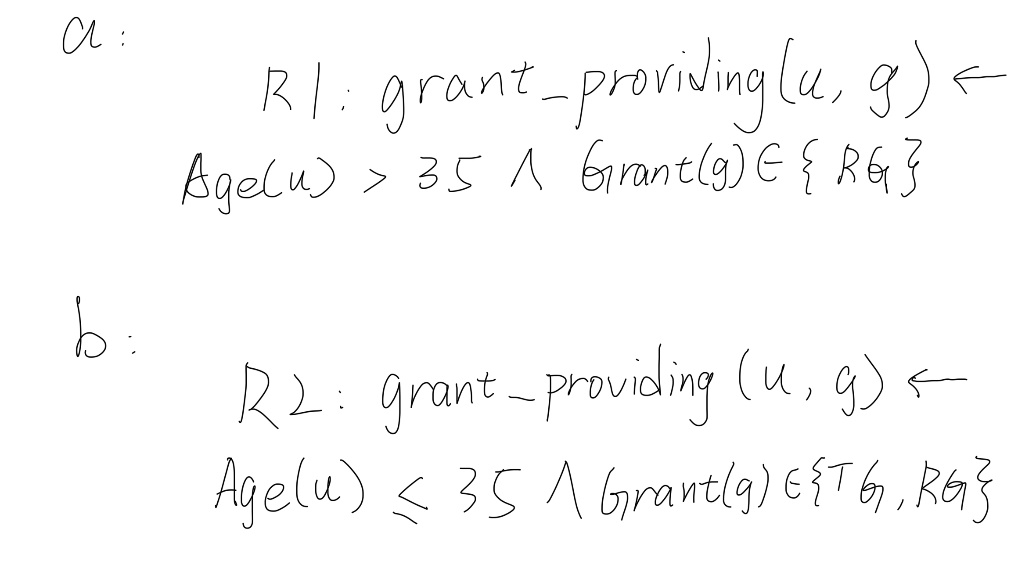 a:
R1: grant_providing(u, g) ←
Age(u) > 35 ∧ Grant(g) ∈ {RG}
b:
R2: grant_providing (u, g) ←
Age(u) ≤ 35 ∧ Grant(g) ∈ {TG, RG}